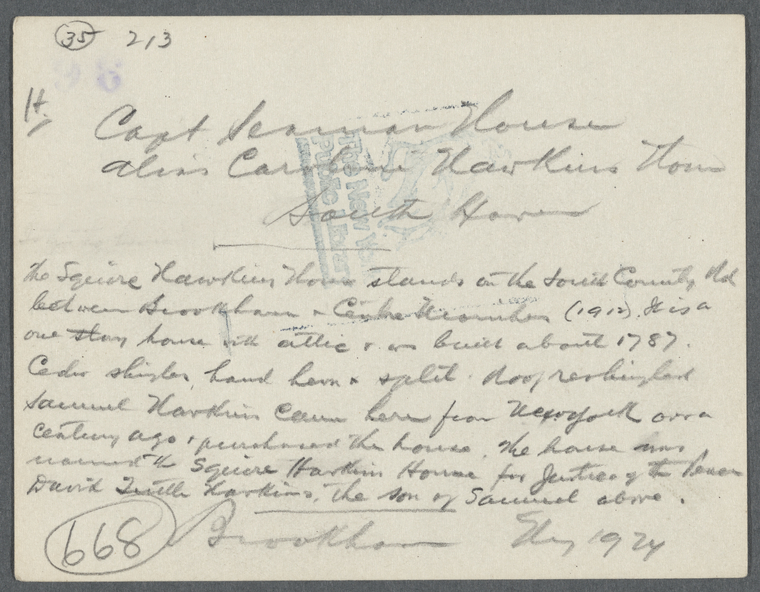 35 213
H.
Capt Seaman House
alias Caroline Hawkins House
South Haven
The New Yo
Public Librar
the Squire Hawkins House stands on the South County Rd
between Brookhaven & Centre Moriches (1912). It is a
one story house with attic & was built about 1787.
Cedar shingles, hand hewn & split. Roof reshingled
Samuel Hawkins came here from New York over a
century ago & purchased the house. The house was
named the Squire Hawkins House for Justice of the Peace
David Tuttle Hawkins, the son of Samuel above.
668 Brookhaven 1924